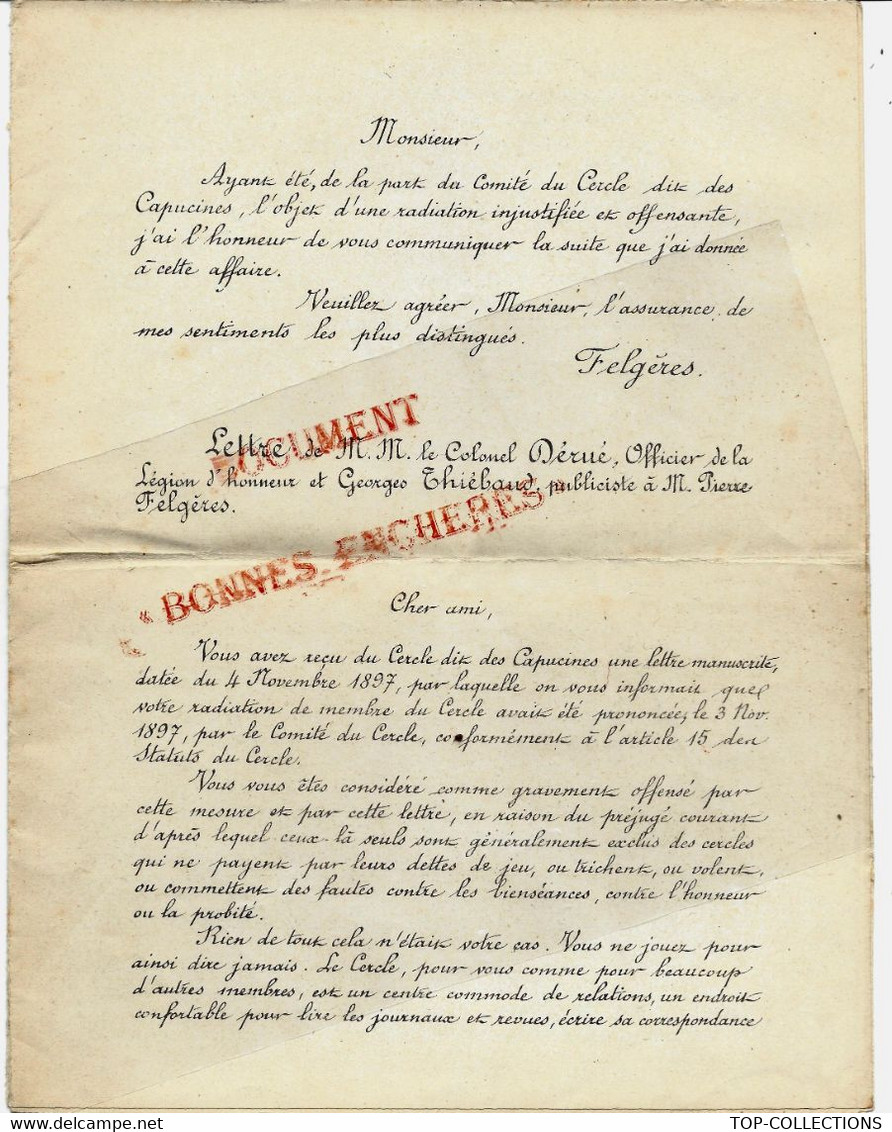 Monsieur,
Ayant été, de la part du Comité du Cercle dit des
Capucines, l'objet d'une radiation injustifiée et offensante,
j'ai l'honneur de vous communiquer la suite que j'ai donnée
à cette affaire.
Veuillez agréer, Monsieur, l'assurance de
mes sentiments les plus distingués.
Felgéres.
DOCUMENT
Lettre de M. M. le Colonel Dérué, Officier de la
Légion d'honneur et Georges Thiébaud, publiciste à M. Pierre
Felgères.
« BONNES ENCHERES »
Cher ami,
Vous avez reçu du Cercle dit des Capucines une lettre manuscrite,
datée du 4 Novembre 1897, par laquelle on vous informait que
votre radiation de membre du Cercle avait été prononcée, le 3 Nov.
1897, par le Comité du Cercle, conformément à l'article 15 des
Statuts du Cercle.
Vous vous êtes considéré comme gravement offensé par
cette mesure et par cette lettre, en raison du préjugé courant
d'après lequel ceux-là seuls sont généralement exclus des cercles
qui ne payent par leurs dettes de jeu, ou trichent, ou volent,
ou commettent des fautes contre les bienséances, contre l'honneur
ou la probité.
Rien de tout cela n'était votre cas. Vous ne jouez pour
ainsi dire jamais. Le Cercle, pour vous comme pour beaucoup
d'autres membres, est un centre commode de relations, un endroit
confortable pour lire les journaux et revues, écrire sa correspondance
TOP-COLLECTIONS